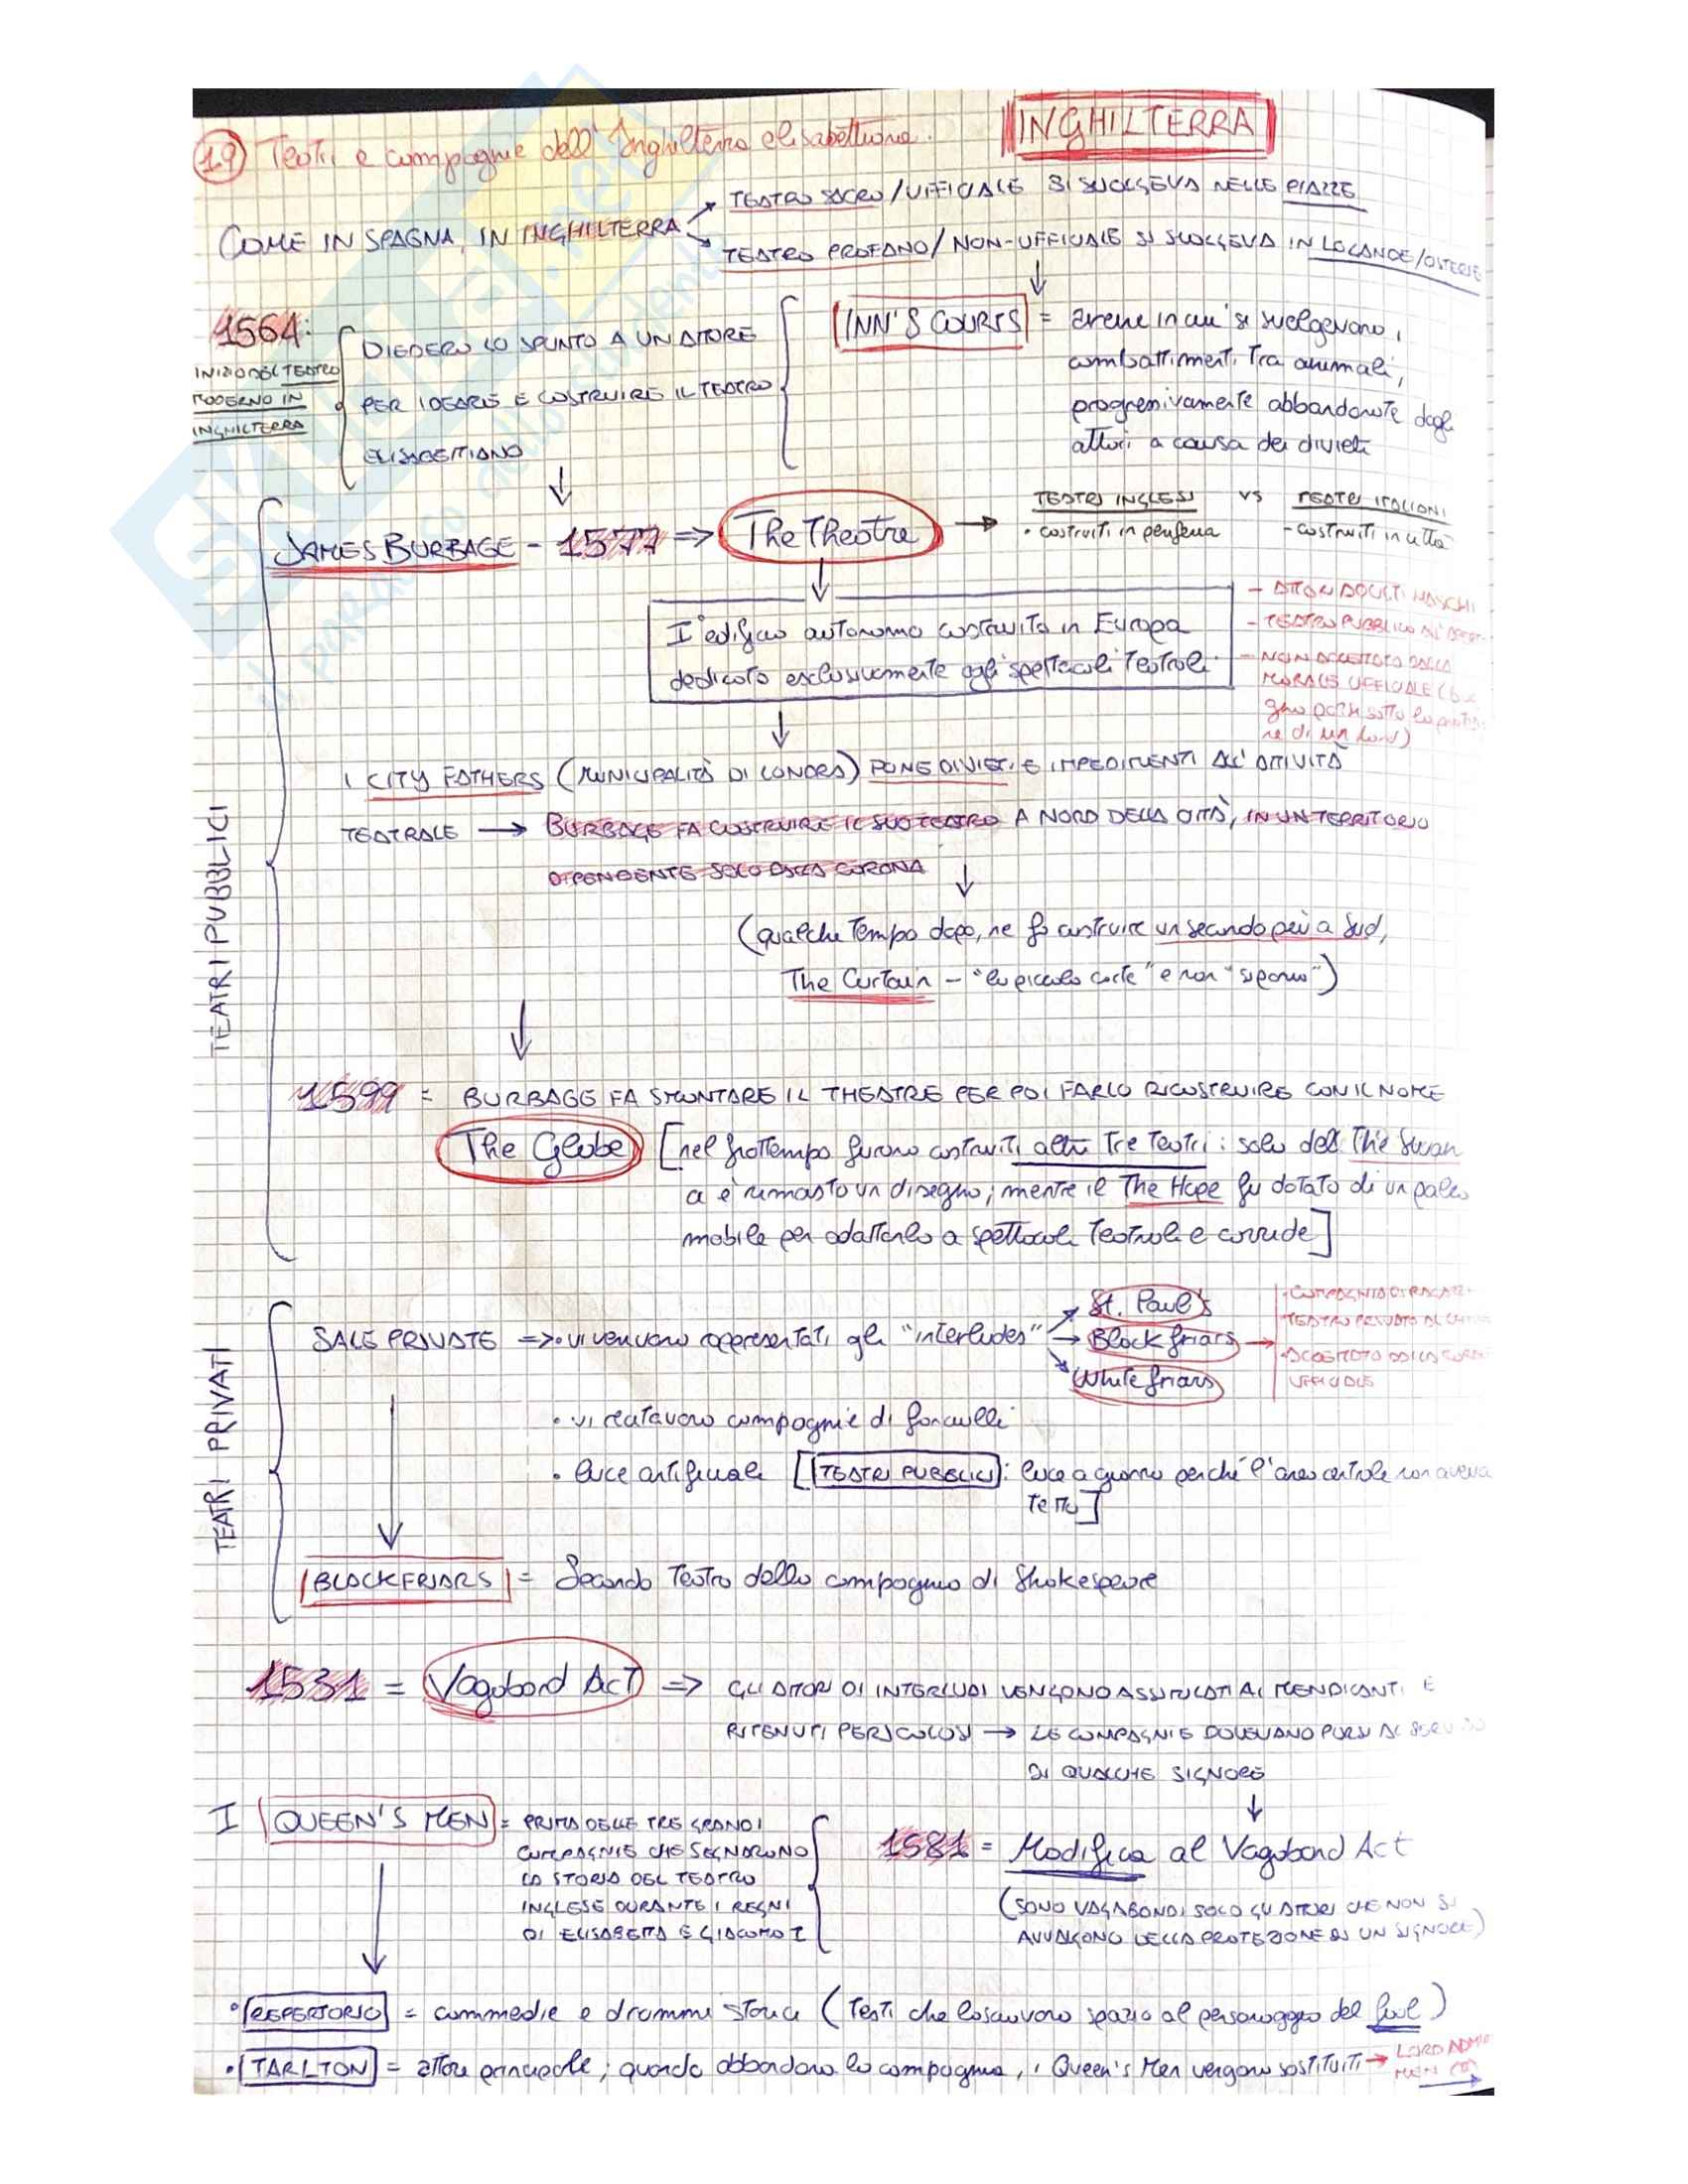 1.9 Teatri e compagnie dell'Inghilterra elisabettiana.
INGHILTERRA
COME IN SPAGNA, IN INGHILTERRA
TEATRO SACRO/UFFICIALE SI SVOLGEVA NELLE PIAZZE
TEATRO PROFANO/NON-UFFICIALE SI SVOLGEVA IN LOCANDE/OSTERIE
1564:
INIZIO DEL TEATRO
MODERNO IN
INGHILTERRA
DIEDERO LO SPUNTO A UN ATTORE
PER IDEARE E COSTRUIRE IL TEATRO
ELISABETTIANO
INN'S COURTS = arene in cui si svolgevano i
combattimenti tra animali,
progressivamente abbandonate dagli
attori a causa dei divieti
JAMES BURBAGE - 1577 => The Theatre
TEATRI INGLESI VS TEATRI ITALIANI
• costruiti in periferia - costruiti in città
I° edificio autonomo costruito in Europa
dedicato esclusivamente agli spettacoli teatrali.
- ATTORI ADULTI MASCHI
- TEATRO PUBBLICO ALL'
- NON ACCETTATO DALLA
MORALE UFFICIALE
sotto la
ne di un lord)
I CITY FATHERS (MUNICIPALITÀ DI LONDRA) PONE DIVIETI E IMPEDIMENTI ALL'ATTIVITÀ
TEATRALE → BURBAGE FA COSTRUIRE IL SUO TEATRO A NORD DELLA CITTÀ, IN UN TERRITORIO
DIPENDENTE SOLO DALLA CORONA
(qualche tempo dopo, ne fa costruire un secondo più a sud,
The Curtain - "la piccola corte" e non "sipario")
TEATRI PUBBLICI
1599 = BURBAGE FA SMONTARE IL THEATRE PER POI FARLO RICOSTRUIRE CON IL NOME
The Globe [nel frattempo furono costruiti altri tre teatri: solo dell The Swan
ci è rimasto un disegno; mentre il The Hope fu dotato di un palco
mobile per adattarlo a spettacoli teatrali e corride]
TEATRI PRIVATI
SALE PRIVATE => • vi venivano rappresentati gli "interludes"
St. Paul's
Blackfriars
Whitefriars
• COMPAGNIA DI
TEATRO PRIVATO AL
• ACCETTATO DALLA
UFFICIALE
• vi recitavano compagnie di fanciulli
• luce artificiale [TEATRI PUBBLICI: luce a giorno perché l'area centrale non aveva
tetto]
BLACKFRIARS = Secondo teatro della compagnia di Shakespeare
1531 = Vagabond Act => GLI ATTORI DI INTERLUDI VENGONO ASSIMILATI AI MENDICANTI E
RITENUTI PERICOLOSI → LE COMPAGNIE DOVEVANO PORSI AL SERVIZIO
DI QUALCHE SIGNORE
I QUEEN'S MEN = PRIMA DELLE TRE GRANDI
COMPAGNIE CHE SEGNARONO
LA STORIA DEL TEATRO
INGLESE DURANTE I REGNI
DI ELISABETTA E GIACOMO I
1581 = Modifica al Vagabond Act
(SONO VAGABONDI SOLO GLI ATTORI CHE NON SI
AVVALGONO DELLA PROTEZIONE DI UN SIGNORE)
• REPERTORIO = commedie e drammi storici (testi che lasciavano spazio al personaggio del fool)
• TARLTON = attore principale; quando abbandona la compagnia, i Queen's Men vengono sostituiti → LORD
MEN